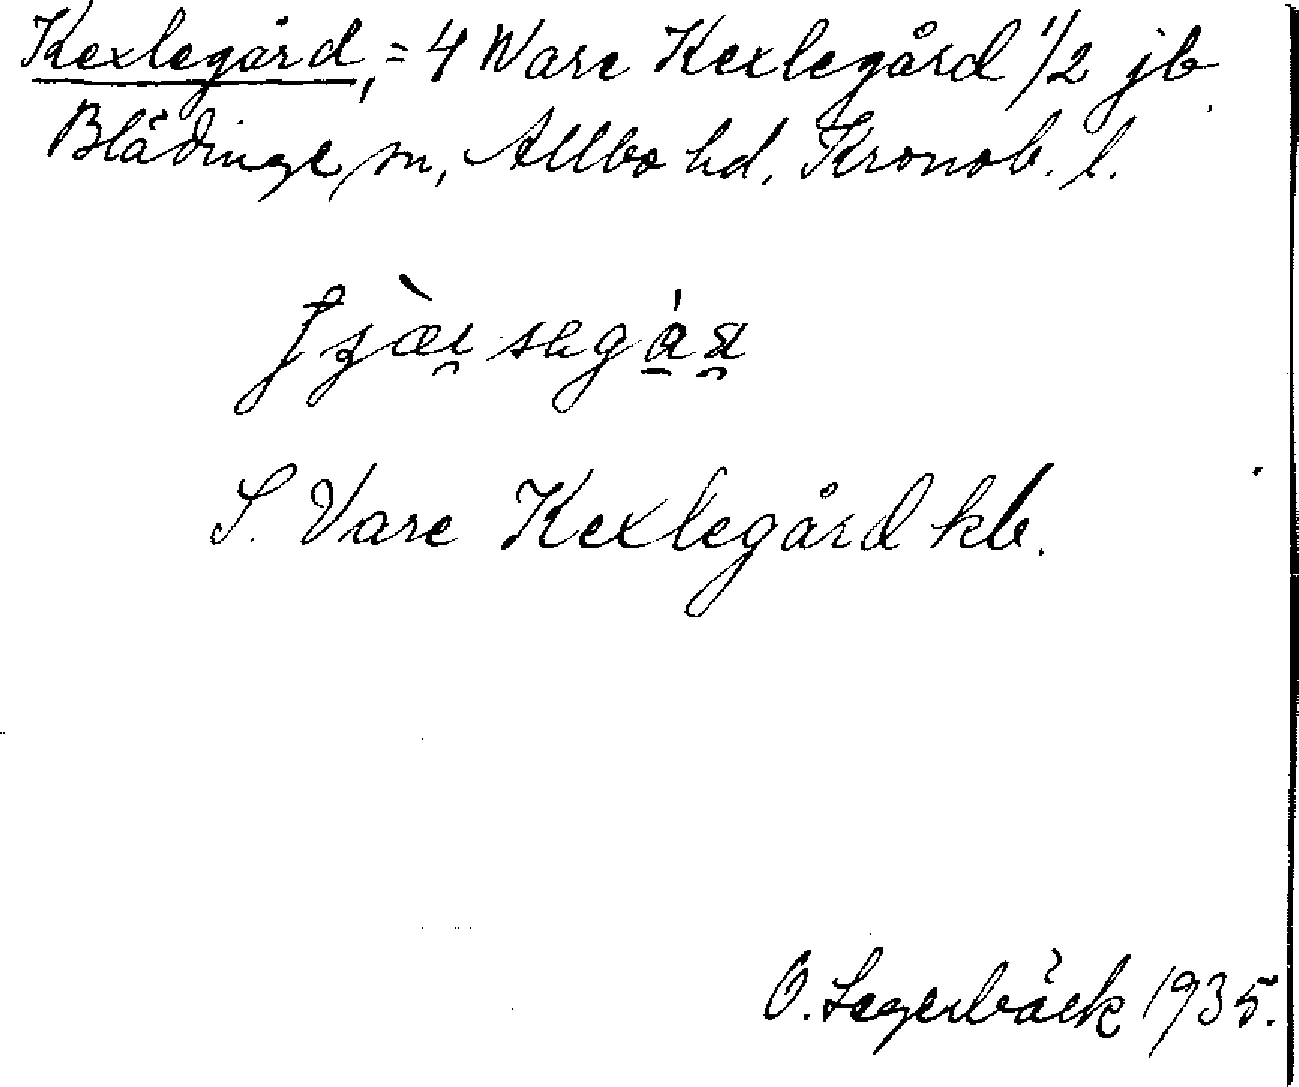 Kexlegård, = 4 Ware Kexlegård 1/2 jb.
Blädinge sn, Allbo hd, Kronob. l.
S. Vare Kexlegård kb.
O. Lagerbäck 1935.